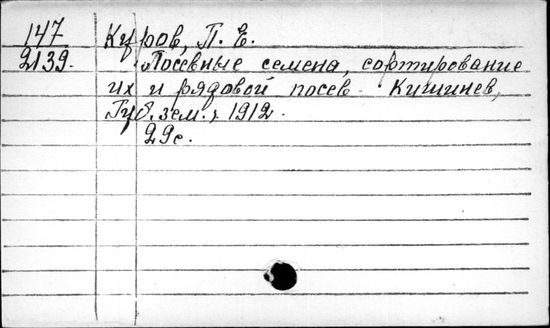 147 Куров, П. Е.
2139. Посевные семена, сортирование
их и рядовой посев. Кишинев,
Губ. зем., 1912.
29с.